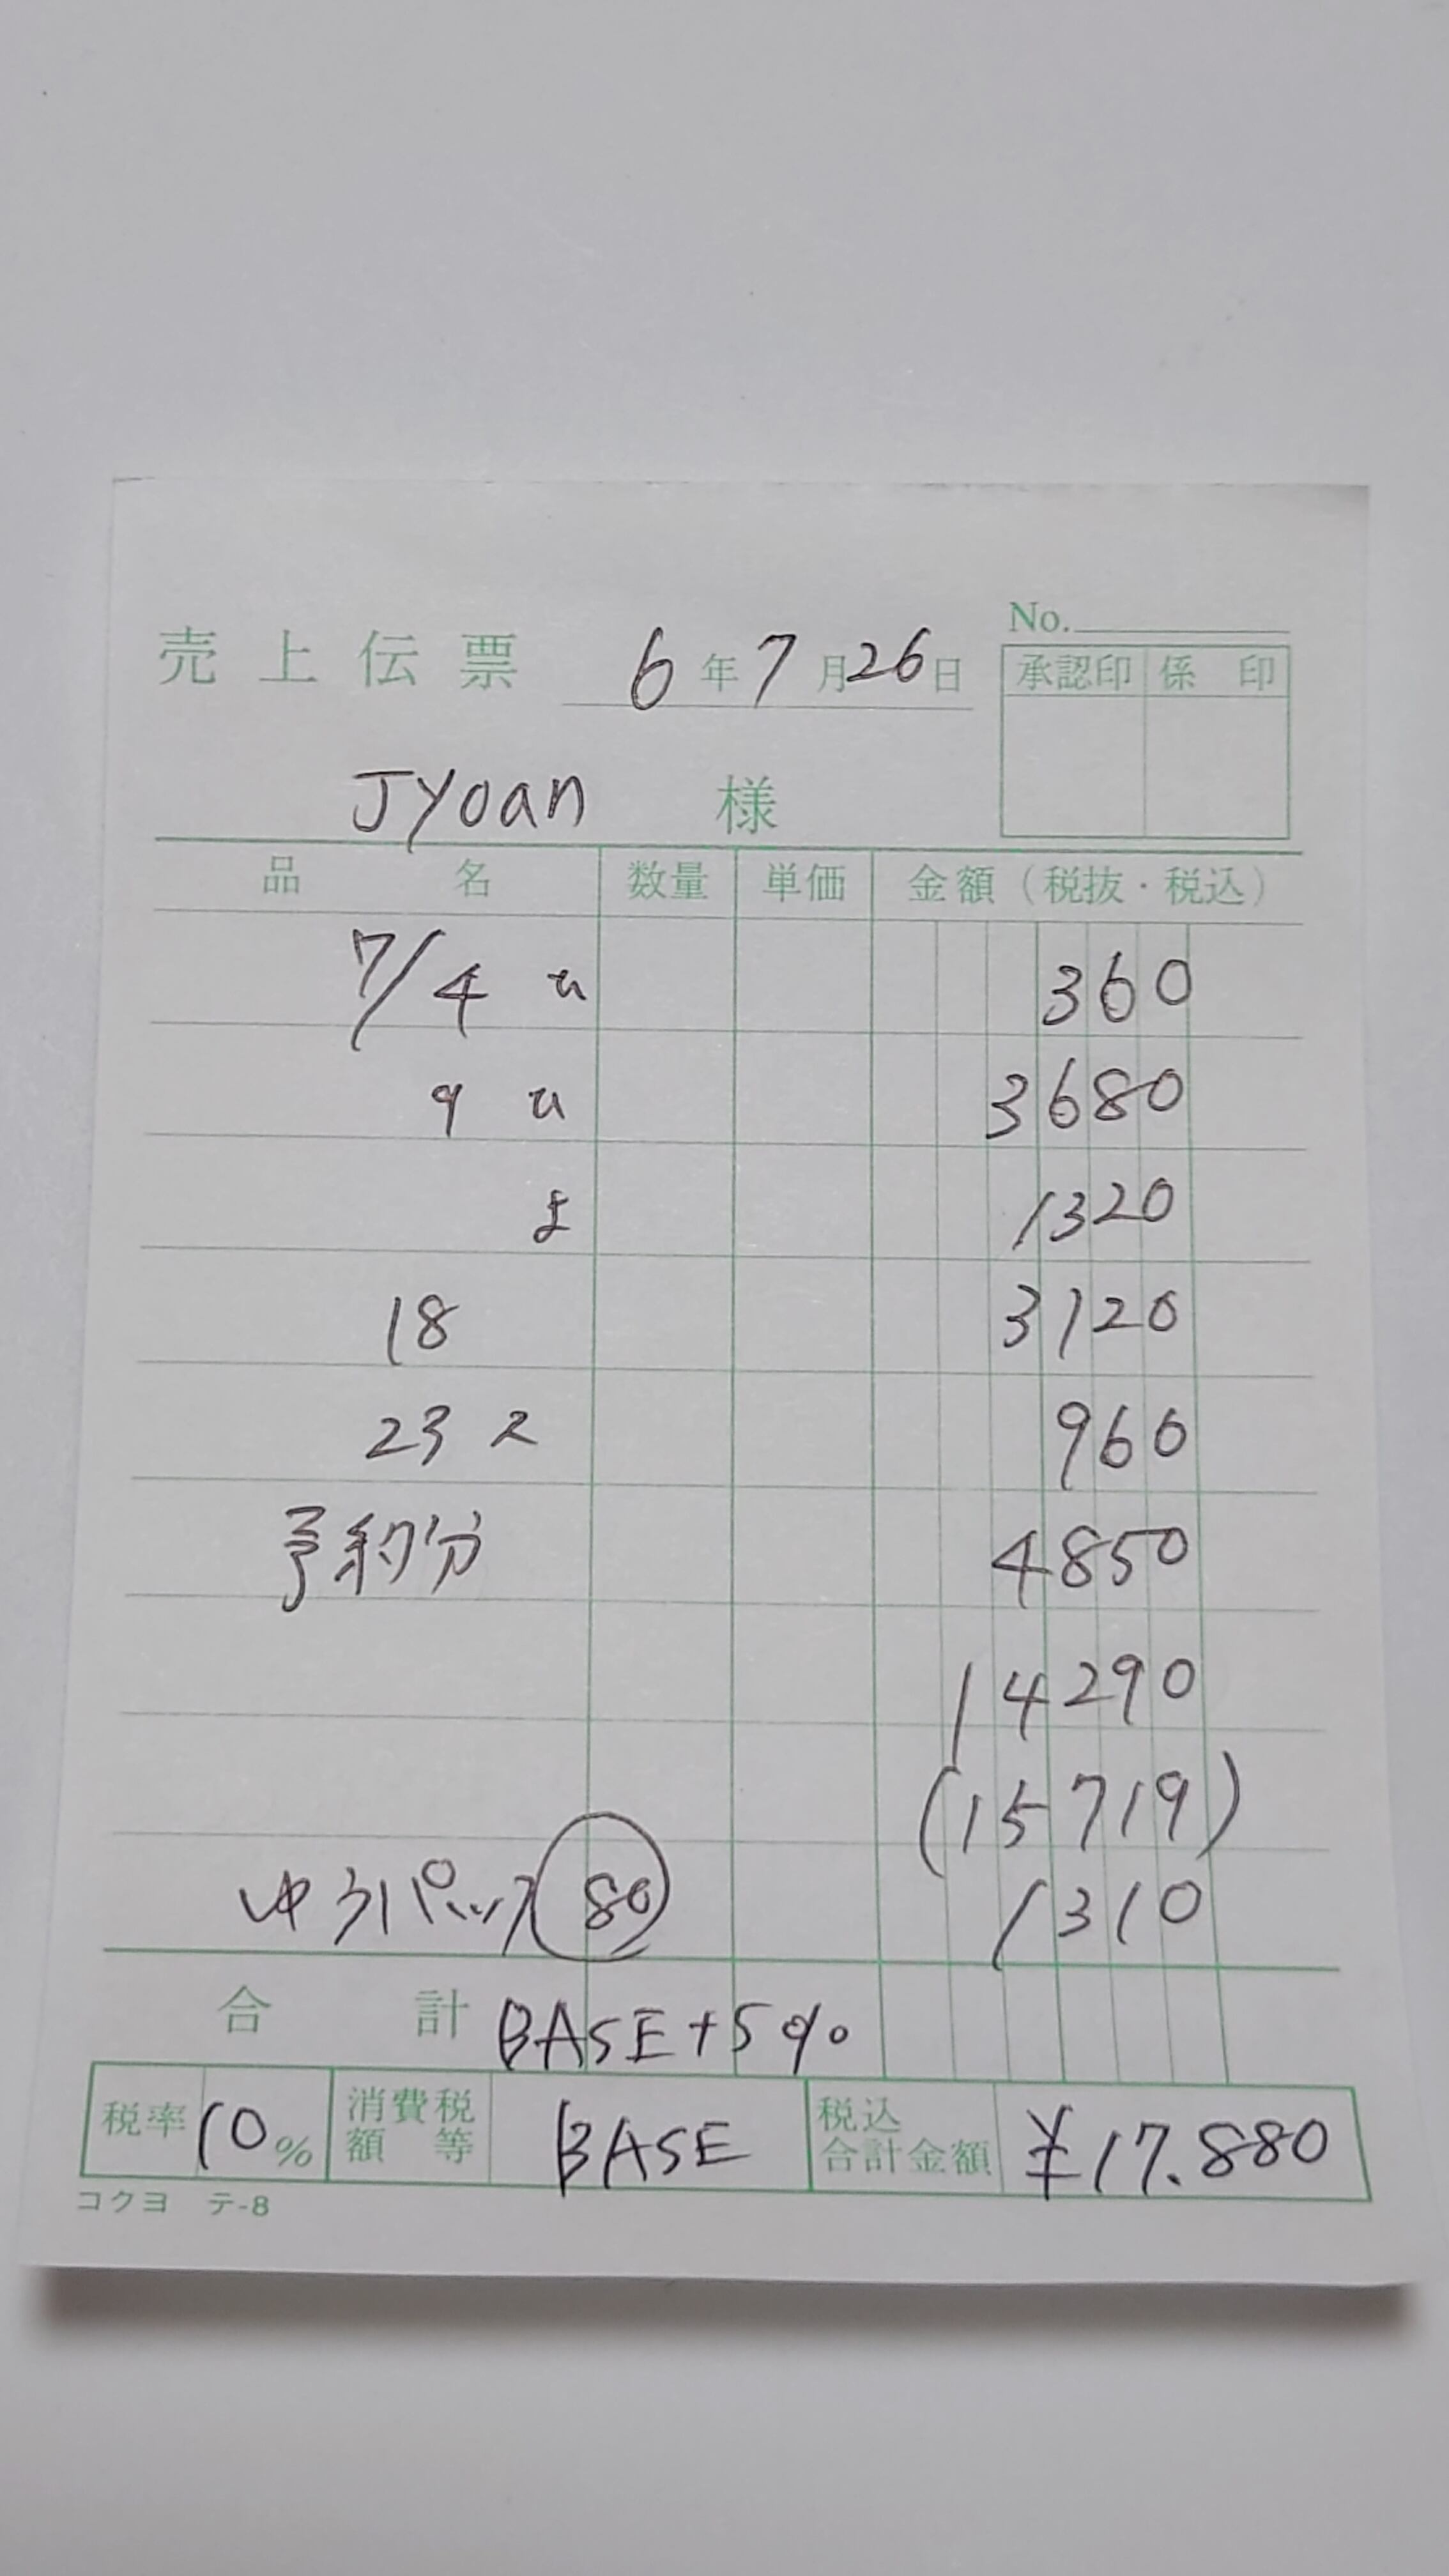 No.
売上伝票 6年7月26日
承認印 係印
Jyoan 様
品名 数量 単価 金額(税抜・税込)
7/4 な 360
9 な 3680
よ 1320
18 3120
23 ス 960
予約分 4850
14290
(15719)
ゆうパック 80 1310
合計 BASE+5%
税率 10% 消費税額等 BASE 税込合計金額 ¥17.880
コクヨ テ-8